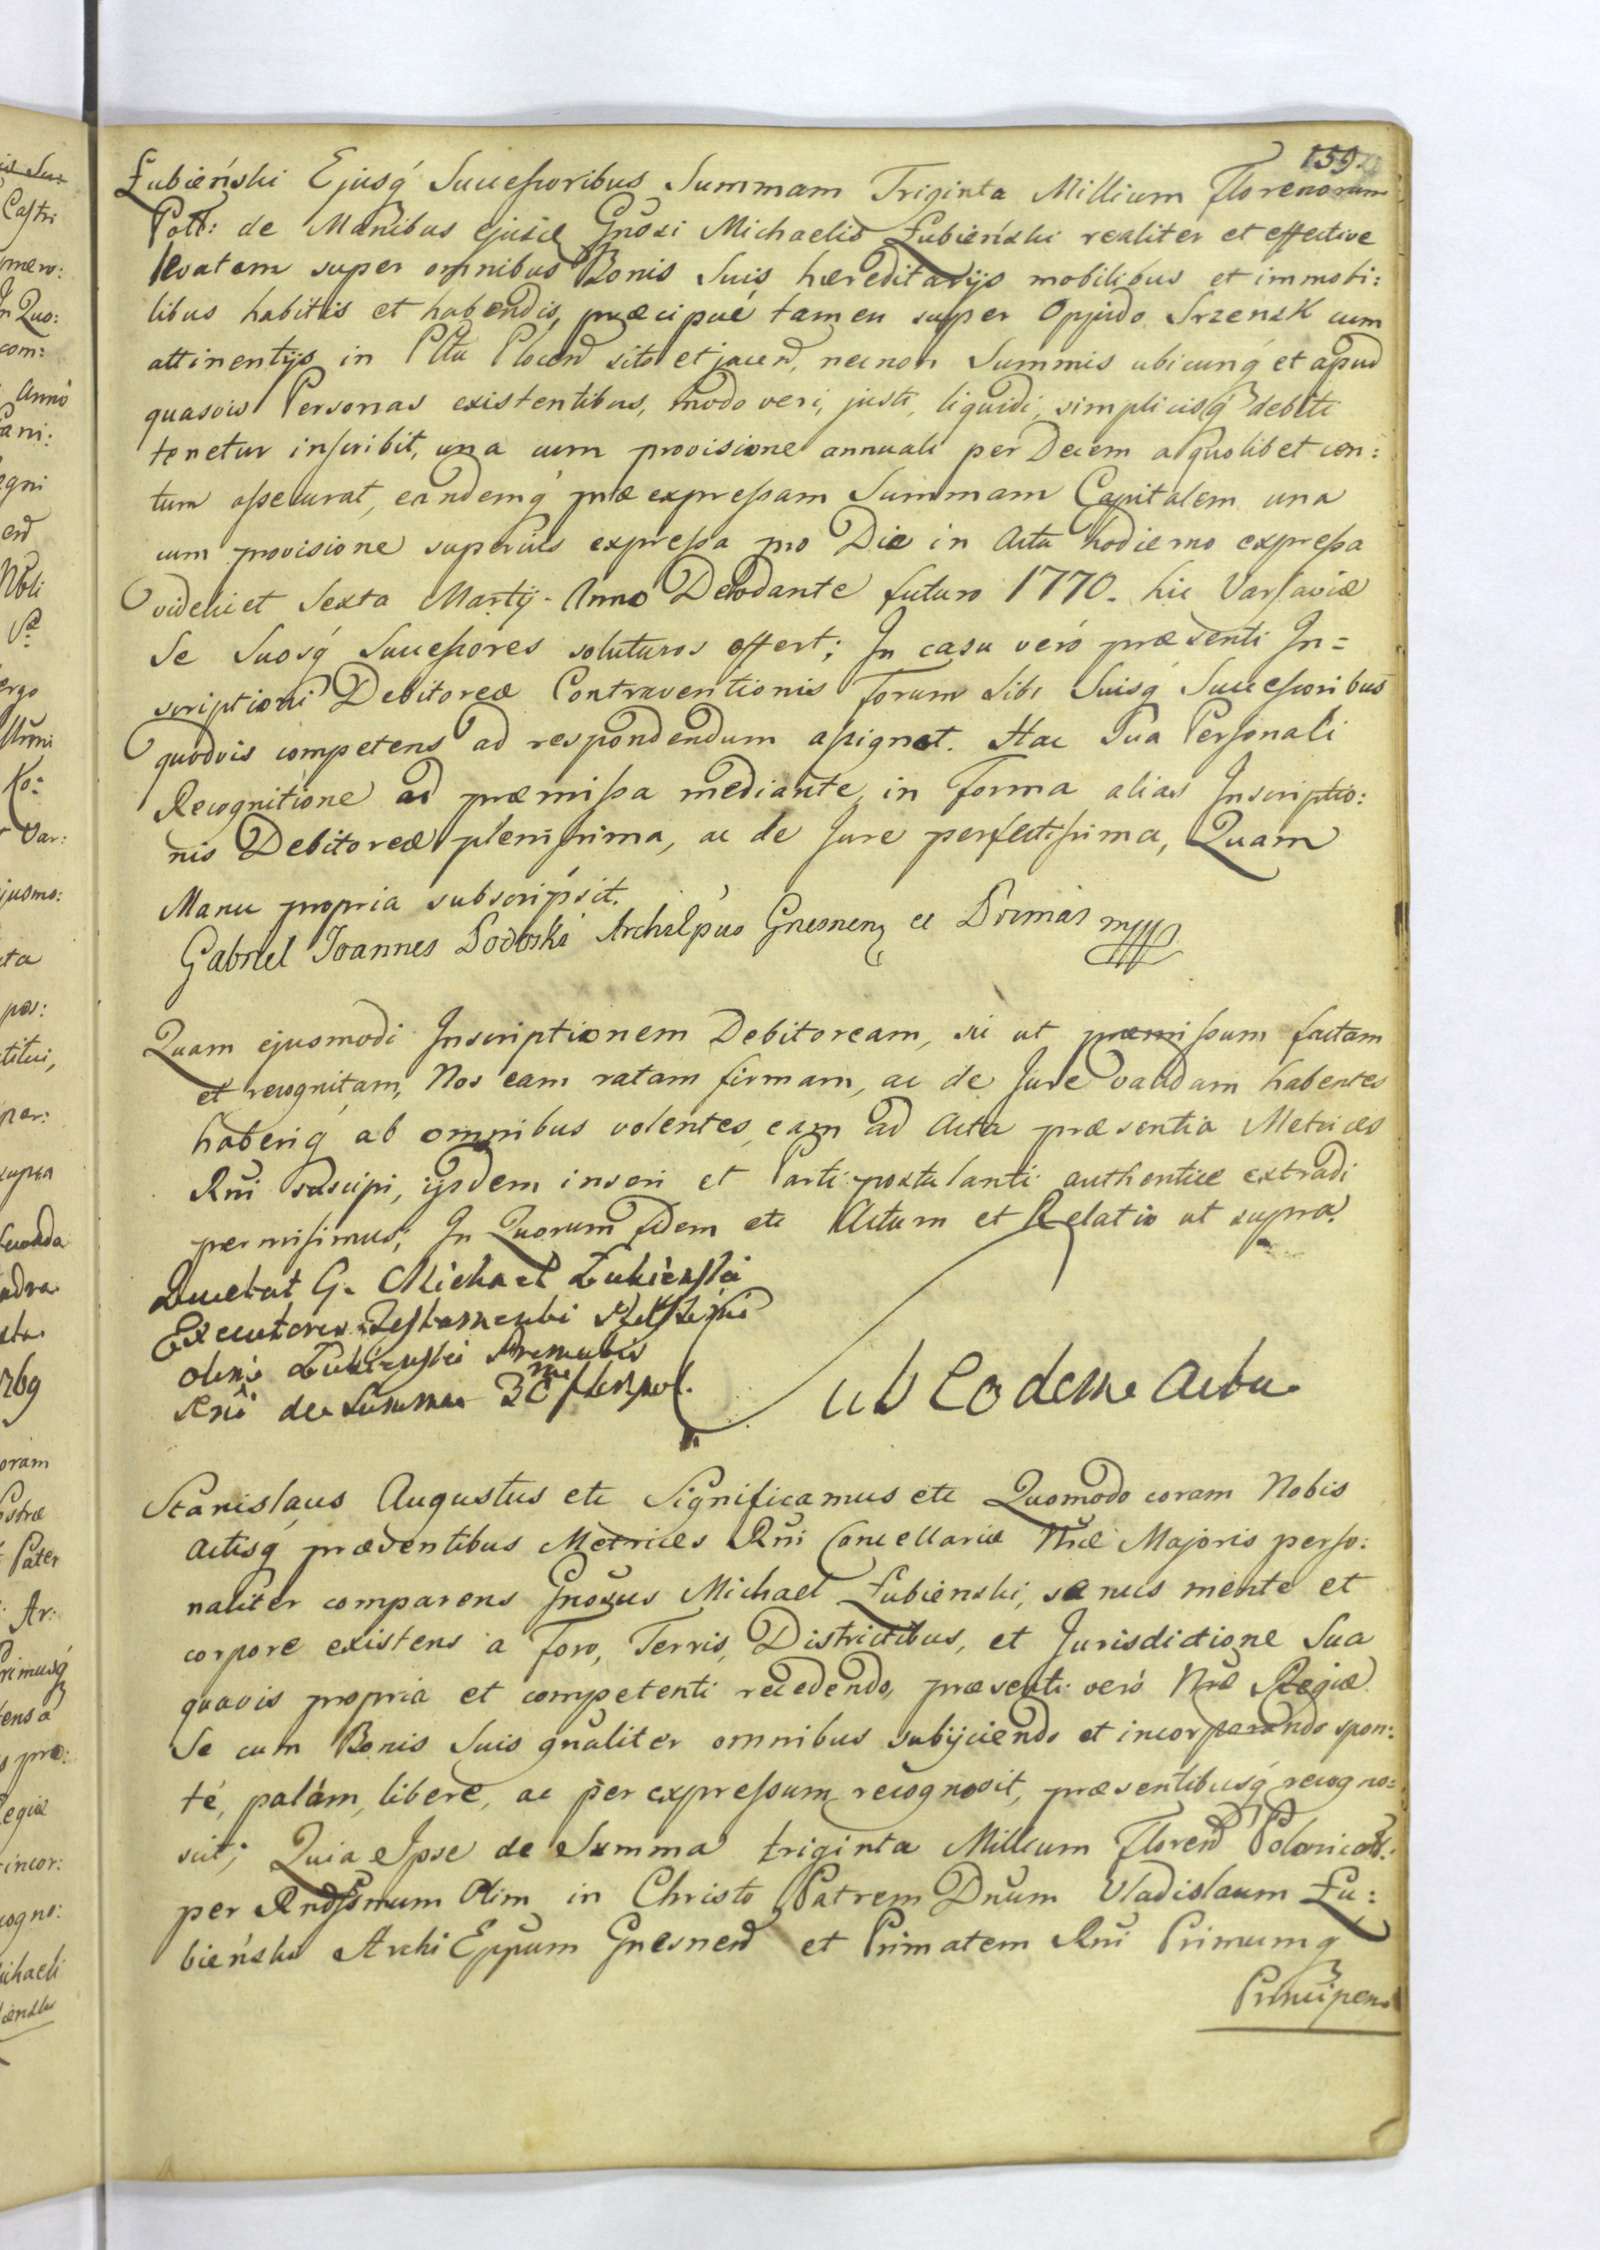 159.
Łubieński Ejusq́ Successoribus Summam Triginta Millium Florenorum
Poll: de Manibus ejusd Gnosi Michaelis Łubieński realiter et effective
levatam super omnibus Bonis Suis hæreditarijs mobilibus et immobi:
libus habitis et habendis, præcipue tamen super Oppido Srzensk cum
attinentijs in Pltu Plocen sito et jacen, necnon Summis ubicunq́ et apud
quasvis Personas existentibus, modo veri, justi, liquidi, simplicisq́ debiti
tenetur inscribit, una cum provisione annuali per Decem a quolibet cen:
tum assecurat, eandemq́ præexpressam Summam Capitalem una
cum provisione superius expressa pro Die in Acta hodierno expressa
videlicet Sexta Martij Anno Deodante futuro 1770. hic Varsaviæ
Se Suosq́ Successores soluturos offert; In casu verò præsenti In=
scriptioni Debitoreæ Contraventionis Forum Sibi Suisq́ Successoribus
quodvis competens ad respondendum assignat. Hac Sua Personali
Recognitione ad præmissa mediante, in Forma alias Inscriptio:
nis Debitoreæ plenissima, ac de Jure perfectissima, Quam
Manu propria subscripsit.
Gabriel Joannes Podoski Archiepus Gnesnen et Primas mpp
Quam ejusmodi Inscriptionem Debitoream, sic ut præmissum factam
et recognitam, Nos eam ratam firmam, ac de Jure validam habentes
haberiq́ ab omnibus volentes, eam ad Acta præsentia Metrices
Rni suscipi, ijsdem inseri et Parti postulanti authentice extradi
permisimus; In Quorum fidem etc Actum et Relatio ut supra.
Quietat G. Michael Łubieński
Executores Testamenti
olim Łubieński Primatis
Rni de Summa 30 m flor pol.
sub eodem actu
Stanislaus Augustus etc Significamus etc Quomodo coram Nobis
Actisq́ præsentibus Metrices Rni Cancellariæ Nræ Majoris perso:
naliter comparens Gnosus Michael Łubienski, sanus mente et
corpore existens a Foro, Terris, Districtibus, et Jurisdictione Sua
quavis propria et competenti recedendo, præsenti verò Nræ Regiæ
Se cum Bonis Suis gnaliter omnibus subijciendo et incorporando spon:
té, palám, liberè, ac per expressum recognovit, præsentibusq́ recogno:
scit; Quia Ipse de Summa triginta Millium Floren Polonical:
per Rndssmum Olim in Christo Patrem Dnum Vladislaum Łu:
bieński Archi Eppum Gnesnen et Primatem Rni Primumq
Principem